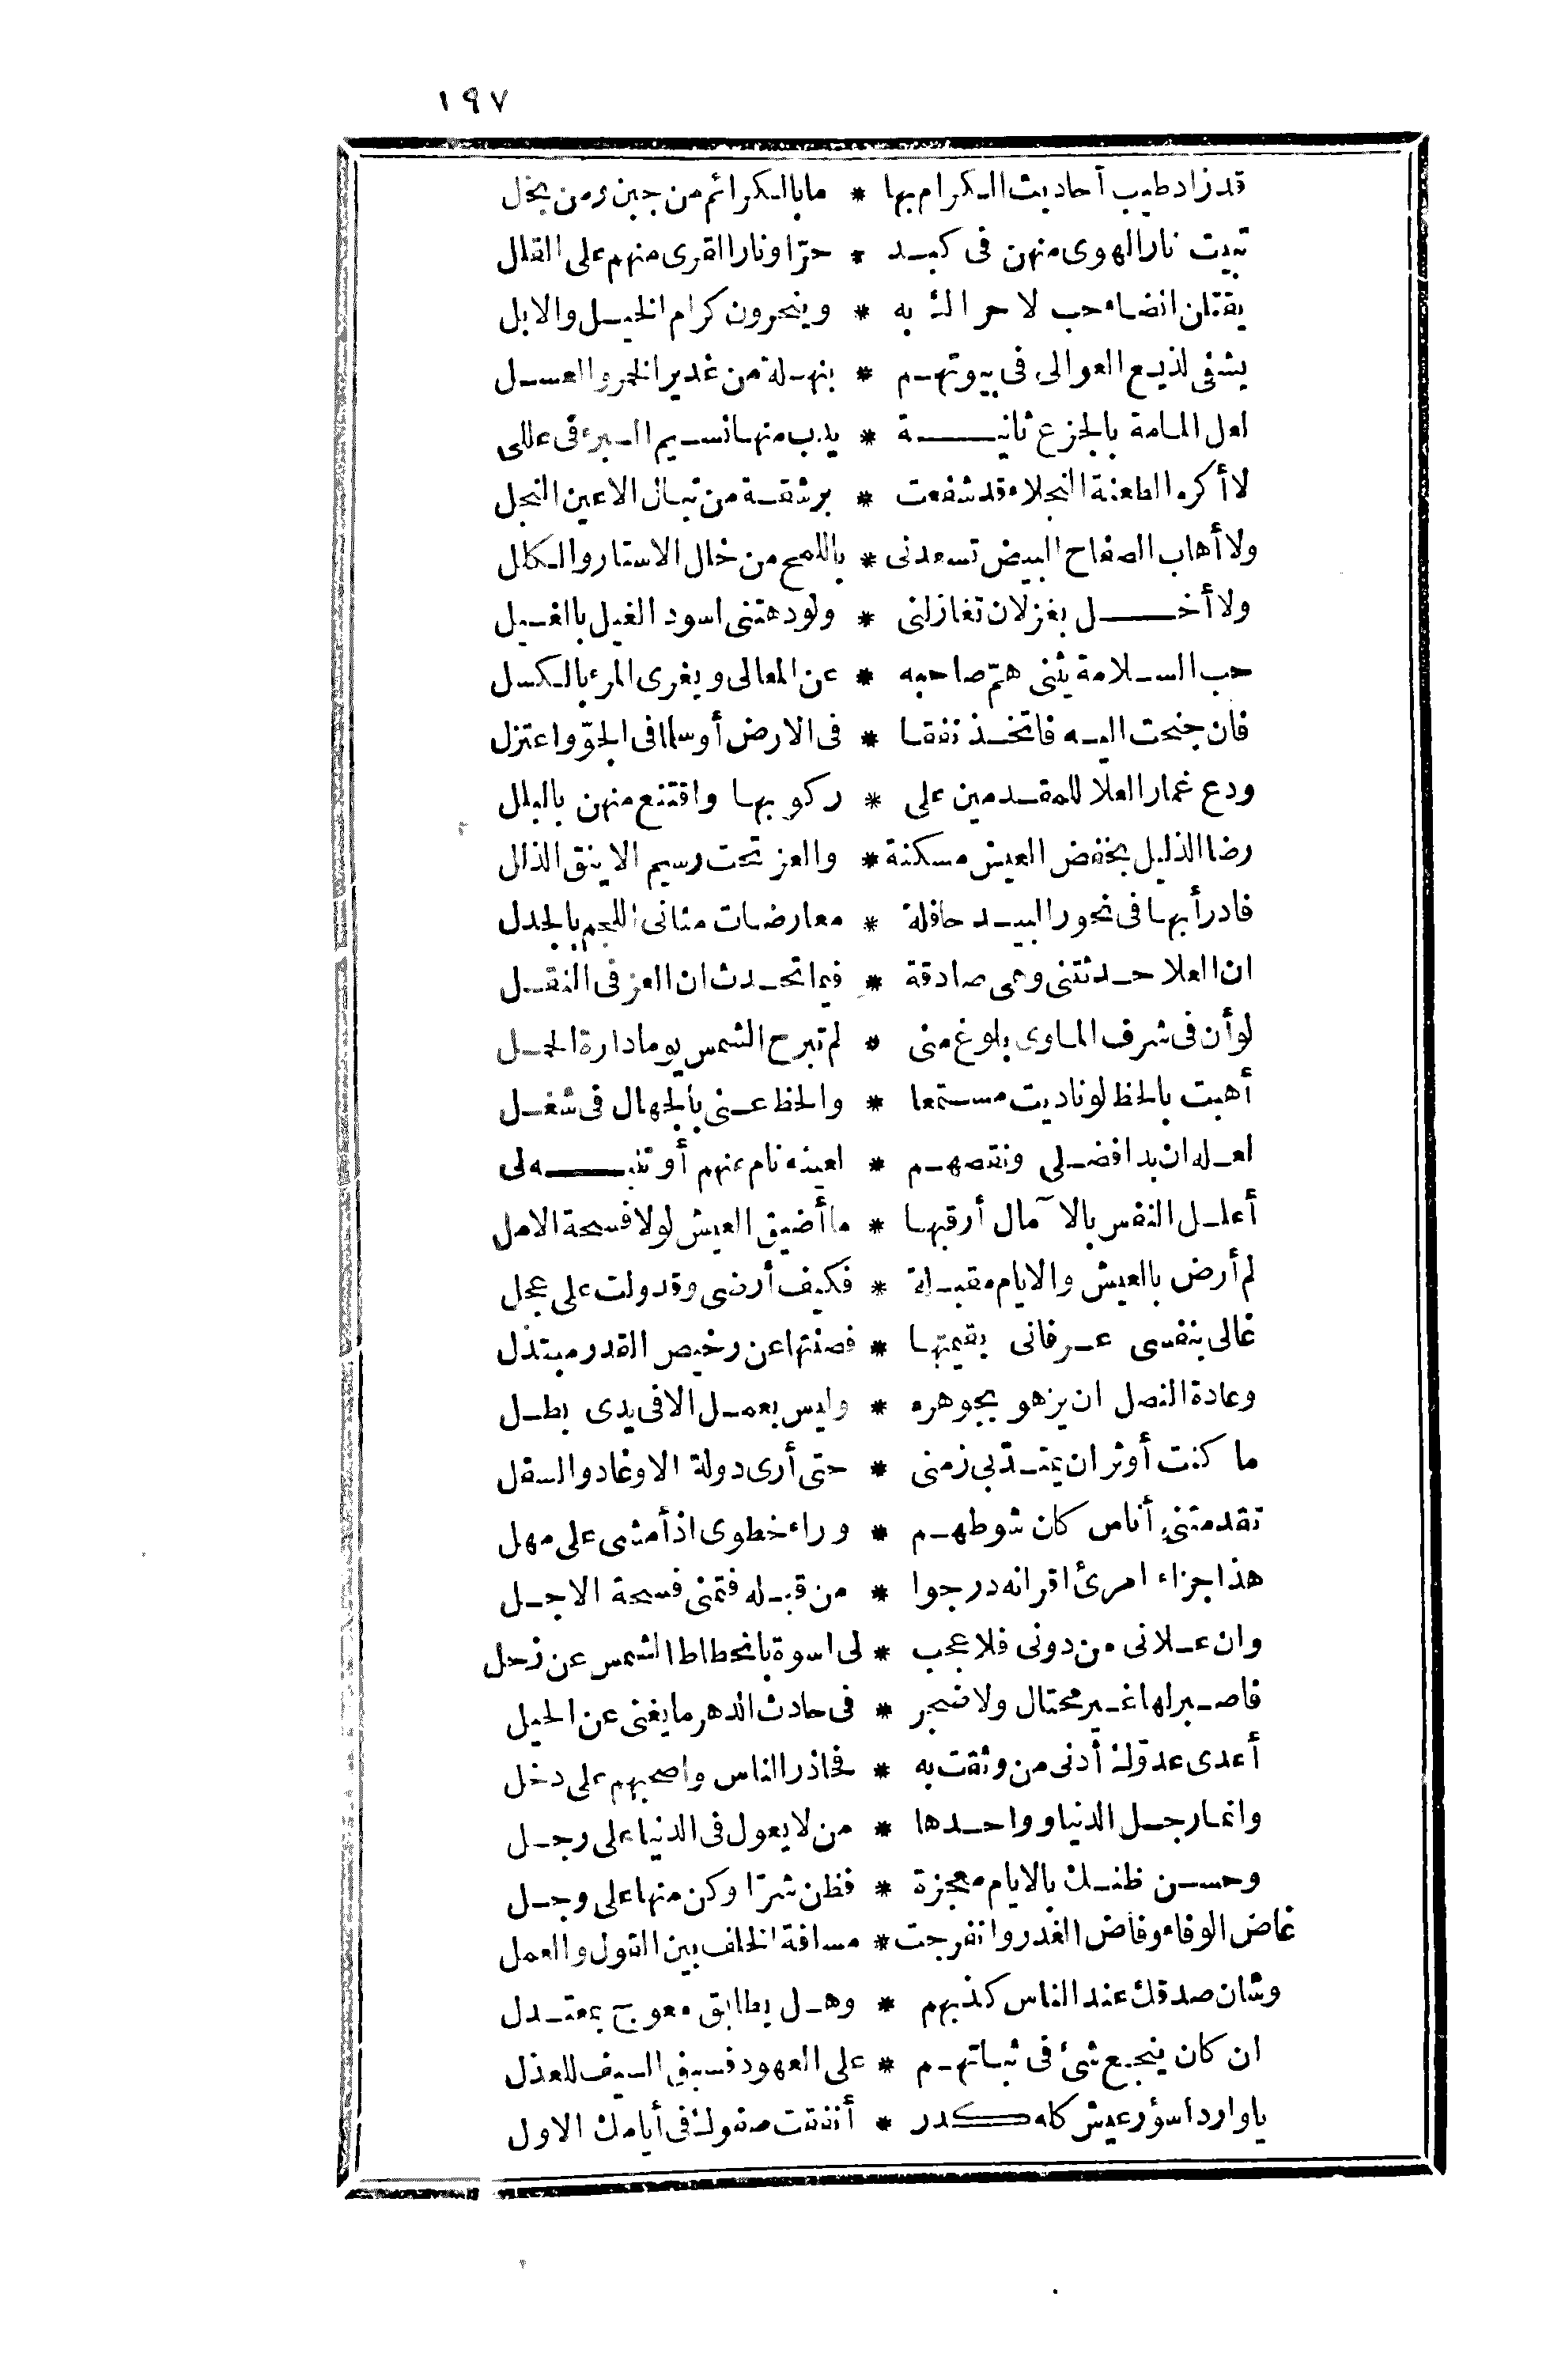 ١٩٧
قد زاد طيب أحاديث الكرام بها * ما بالكرائم من جبن ومن بخل
تبيت نار الهوى منهن فى كبد * حرّا ونار القرى منهم على القلل
يقتلن انضاء حب لا حراك به * وينحرون كرام الخيل والابل
يشفى لذيع العوالى فى بيوتهم * بنهلة من غدير الخمر والعسل
لعل المامة بالجزع ثانية * يدب منها نسيم البرء فى عللى
لا أكره الطعنة النجلاء قد شفعت * برشقة من نبال الاعين النجل
ولا أهاب الصفاح البيض تسعدنى * باللمح من خلل الاستار والكلل
ولا أخل بغزلان تغازلنى * ولو دهتنى اسود الغيل بالغيل
حب السلامة يثنى همّ صاحبه * عن المعالى ويغرى المرء بالكسل
فان جنحت اليه فاتخذ نفقا * فى الارض أو سلما فى الجوّ واعتزل
ودع غمار العلا للمقدمين على * ركوبها واقتنع منهن بالبلل
رضا الذليل بخفض العيش مسكنة * والعز تحت رسيم الاينق الذلل
فادرأ بها فى نحور البيد حافلة * معارضات مثانى اللجم بالجدل
ان العلا حدثتنى وهى صادقة * فيما تحدث ان العز فى النقل
لو أن فى شرف الماوى بلوغ منى * لم تبرح الشمس يوما دارة الحمل
أهبت بالحظ لو ناديت مستمعا * والحظ عنى بالجهال فى شغل
لعله ان بدا فضلى ونقصهم * لعينه نام عنهم أو تنبه لى
أعلل النفس بالآمال أرقبها * ما أضيق العيش لولا فسحة الامل
لم أرض بالعيش والايام مقبلة * فكيف أرضى وقد ولت على عجل
غالى بنفسى عرفانى بقيمتها * فصنتها عن رخيص القدر مبتذل
وعادة النصل ان يزهو بجوهره * وليس يعمل الا فى يدى بطل
ما كنت أوثر ان يمتدّ بى زمنى * حتى أرى دولة الاوغاد والسفل
تقدمتنى أناس كان شوطهم * وراء خطوى اذ أمشى على مهل
هذا جزاء امرئ اقرانه درجوا * من قبله فتمنى فسحة الاجل
وان علانى من دونى فلا عجب * لى اسوة بانحطاط الشمس عن زحل
فاصبر لها غير محتال ولا ضجر * فى حادث الدهر ما يغنى عن الحيل
أعدى عدوّك أدنى من وثقت به * فحاذر الناس واصحبهم على دخل
وانما رجل الدنيا وواحدها * من لا يعول فى الدنيا على رجل
وحسن ظنك بالايام معجزة * فظن شرّا وكن منها على وجل
غاض الوفاء وفاض الغدر وانفرجت * مسافة الخلف بين القول والعمل
وشان صدقك عند الناس كذبهم * وهل يطابق معوج بمعتدل
ان كان ينجع شئ فى ثباتهم * على العهود فسبق السيف للعذل
يا واردا سؤر عيش كله كدر * أنفقت صفوك فى أيامك الاول